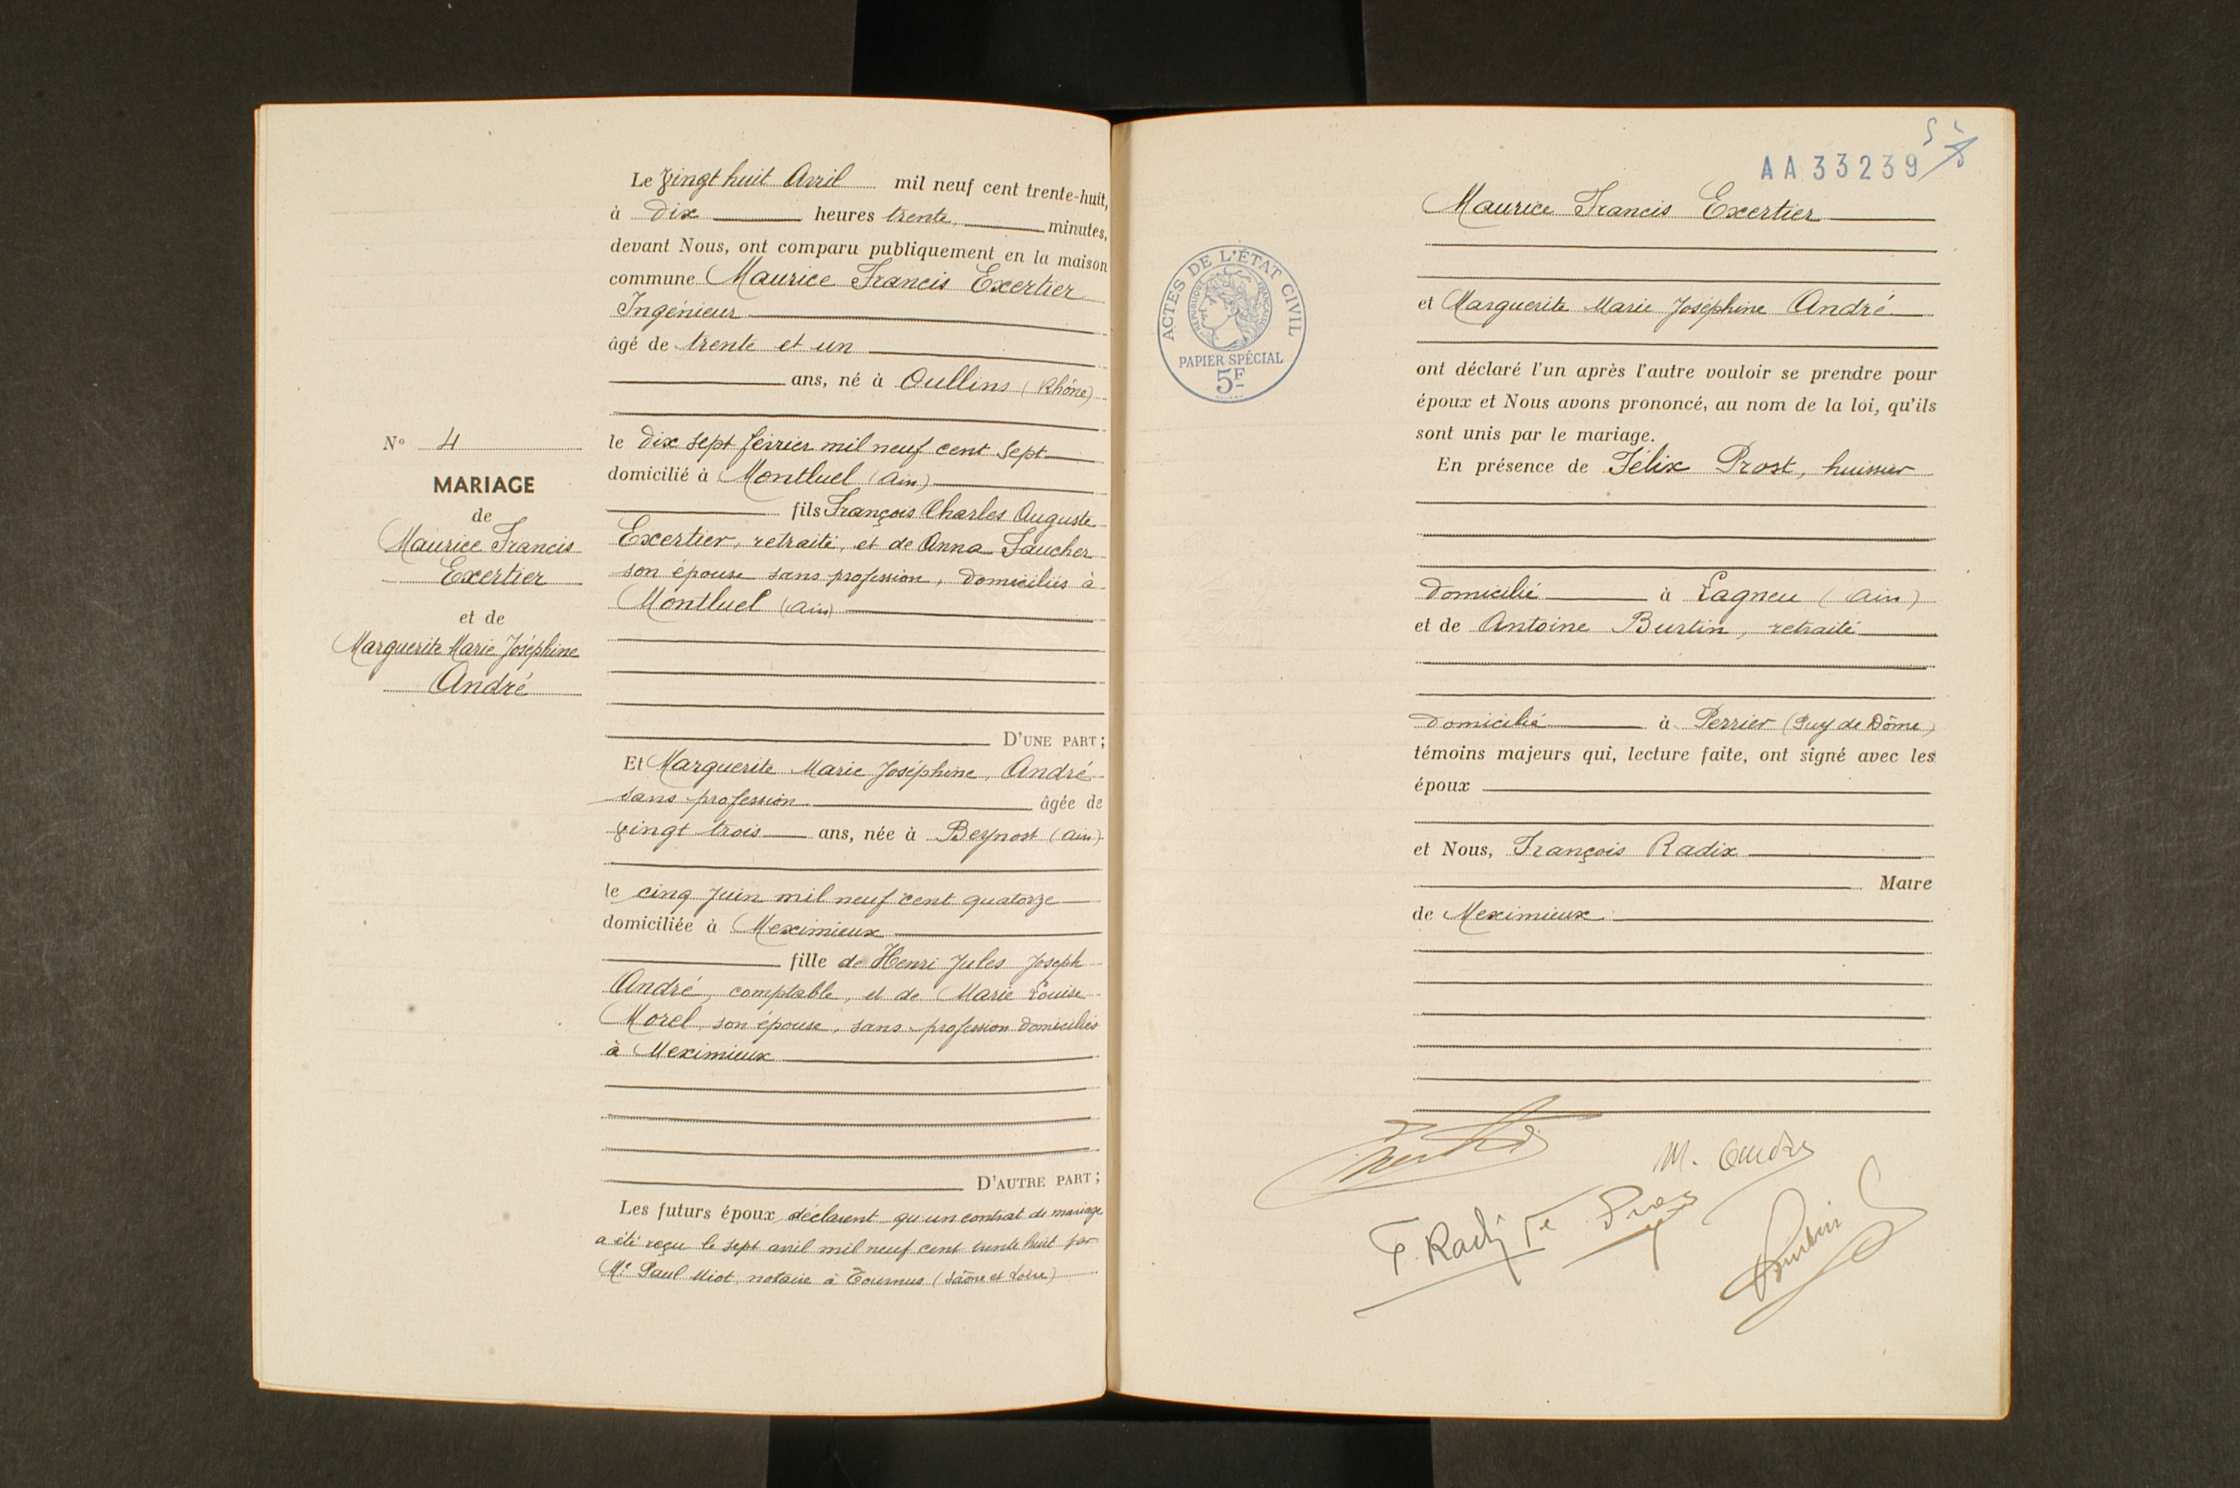 Le vingt huit Avril mil neuf cent trente-huit,
à dix heures trente minutes,
devant Nous, ont comparu publiquement en la maison
commune Maurice Francis Exertier
Ingénieur
âgé de trente et un
ans, né à Oullins (Rhône)
le dix sept février mil neuf cent sept
domicilié à Montluel (Ain)
fils François Charles Auguste
Exertier, retraité, et de Anna Faucher
son épouse sans profession, domiciliés à
Montluel (Ain)
D'UNE PART;
Et Marguerite Marie Joséphine, André
sans profession âgée de
vingt trois ans, née à Beynost (Ain)
le cinq Juin mil neuf cent quatorze
domiciliée à Meximieux
fille de Henri Jules Joseph
André, comptable, et de Marie Louise
Morel, son épouse, sans profession domiciliés
à Meximieux
D'AUTRE PART;
Les futurs époux déclarent qu'un contrat de mariage
a été reçu le sept avril mil neuf cent trente huit par
Me Paul Miot, notaire à Tournus (Saône et Loire)
N° 4
MARIAGE
de
Maurice Francis
Exertier
et de
Marguerite Marie Joséphine
André
AA 33239
ACTES DE L'ÉTAT CIVIL
RÉPUBLIQUE FRANÇAISE
PAPIER SPÉCIAL
5F
Maurice Francis Exertier
et Marguerite Marie Joséphine André
ont déclaré l'un après l'autre vouloir se prendre pour
époux et Nous avons prononcé, au nom de la loi, qu'ils
sont unis par le mariage.
En présence de Félix Prost, huissier
domicilié à Lagneu (Ain)
et de Antoine Burtin, retraité
domicilié à Perrier (Puy de Dôme)
témoins majeurs qui, lecture faite, ont signé avec les
époux
et Nous, François Radix
Maire
de Meximieux
M. André
F. Radix
Burtin